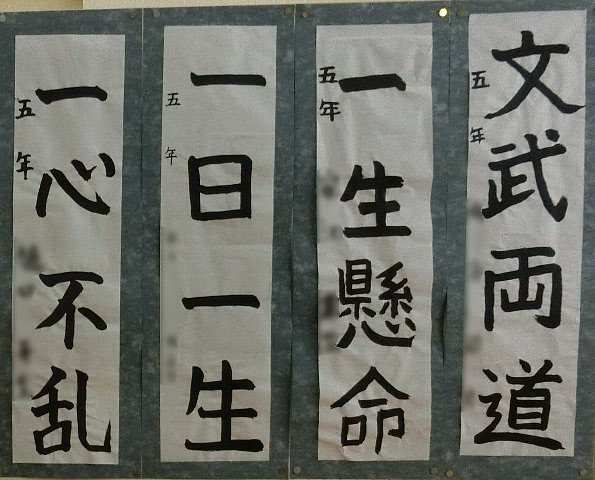 文武両道
五年
一生懸命
五年
一日一生
五年
一心不乱
五年